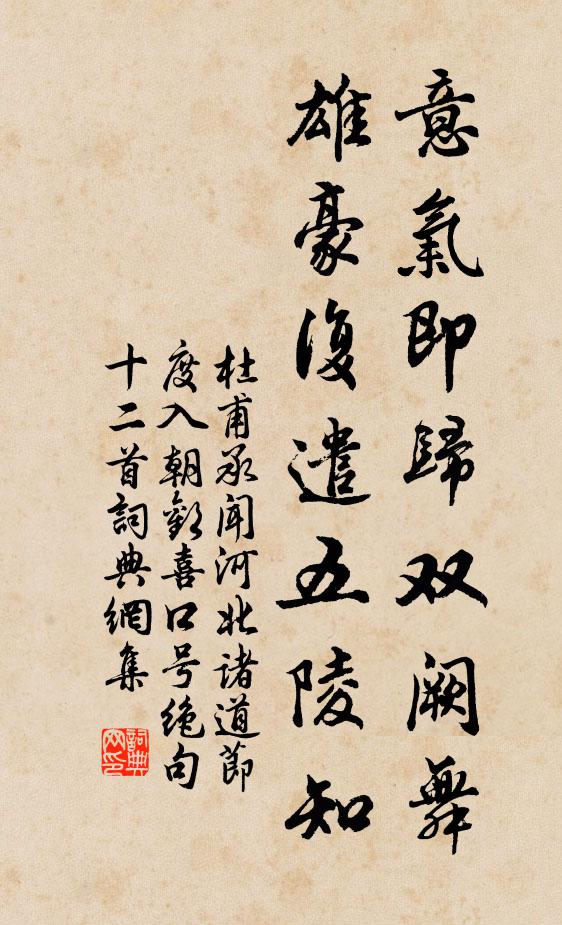 意氣即歸双阙舞
雄豪復遣五陵知
杜甫承闻河北诸道節
度入朝歡喜口号绝句
十二首詞典網集
詞典网印